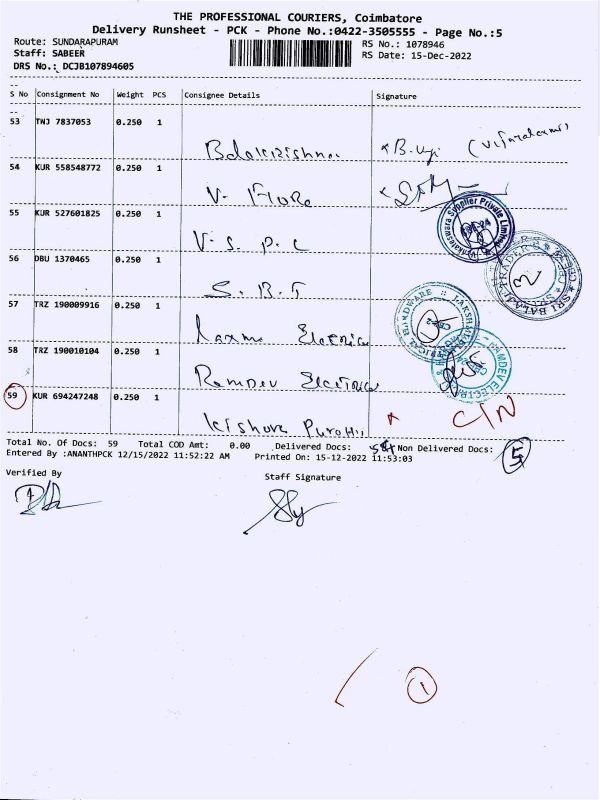 THE PROFESSIONAL COURIERS, Coimbatore
Delivery Runsheet - PCK - Phone No.:0422-3505555 - Page No.:5
Route: SUNDARAPURAM RS No.: 1078946
Staff: SABEER RS Date: 15-Dec-2022
DRS No.: DCJB107894605
S No Consignment No Weight PCS Consignee Details Signature
53 TNJ 7837053 0.250 1
Balakrishnan
54 KUR 558548772 0.250 1
V. Flore
55 KUR 527601825 0.250 1
V. S. P. L
56 DBU 1370465 0.250 1
S. B. T
57 TRZ 190009916 0.250 1
Laxmi Eletrica
58 TRZ 190010104 0.250 1
Ramdev Electrica
59 KUR 694247248 0.250 1
kishore Purohi C/N
Total No. Of Docs: 59 Total COD Amt: 0.00 Delivered Docs: 54 Non Delivered Docs: 5
Entered By :ANANTHPCK 12/15/2022 11:52:22 AM Printed On: 15-12-2022 11:53:03
Verified By Staff Signature
1